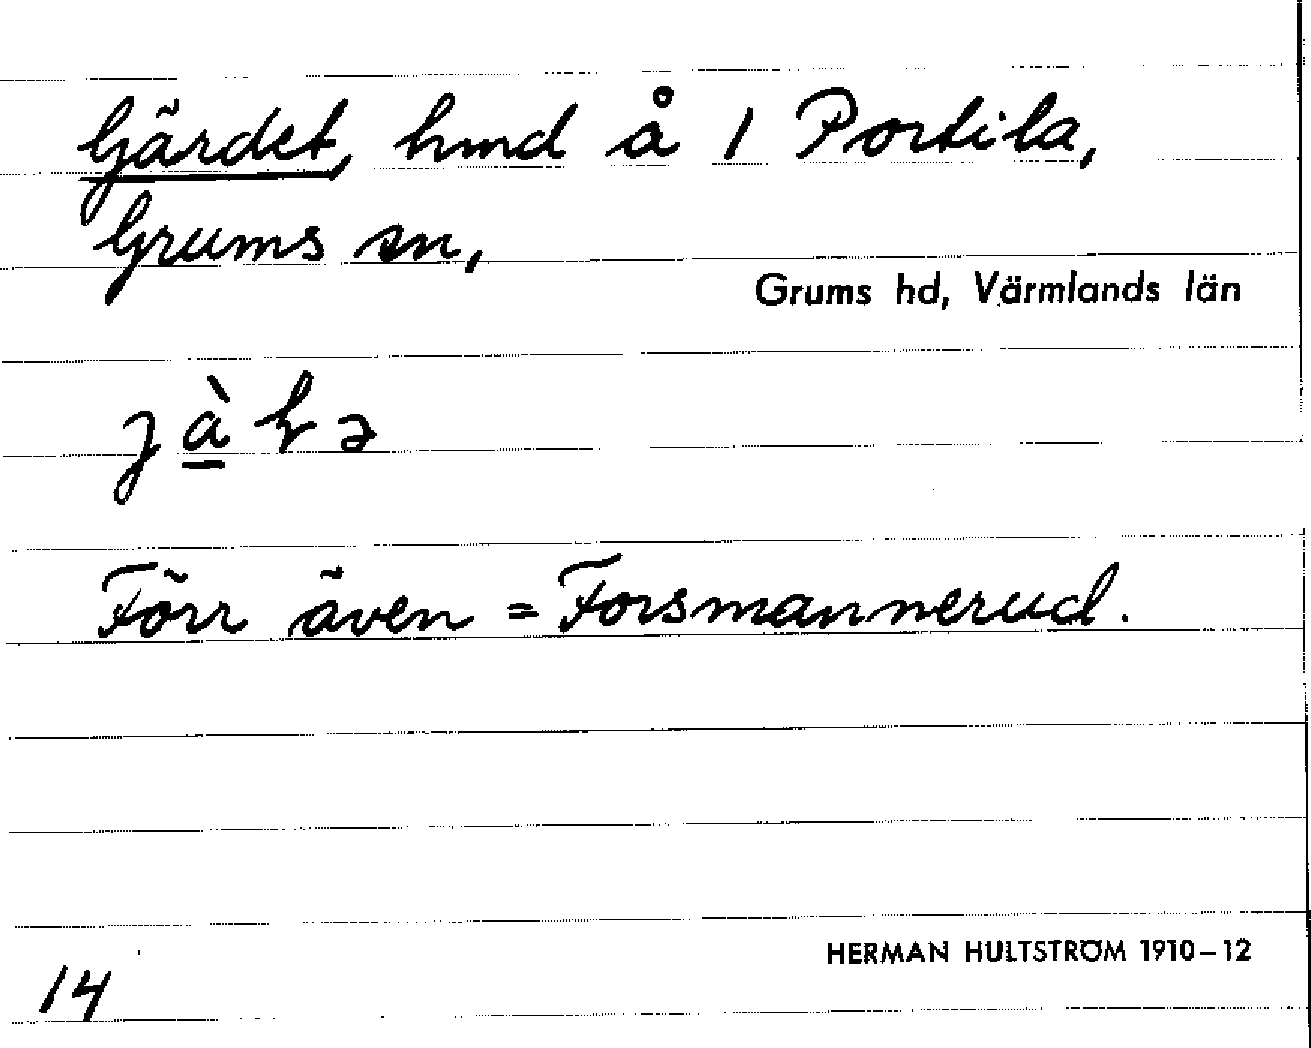 Gärdet, hmd å 1 Portila,
Grums sn,
Grums hd, Värmlands län
Förr även = Forsmannerud.
HERMAN HULTSTRÖM 1910–12
14